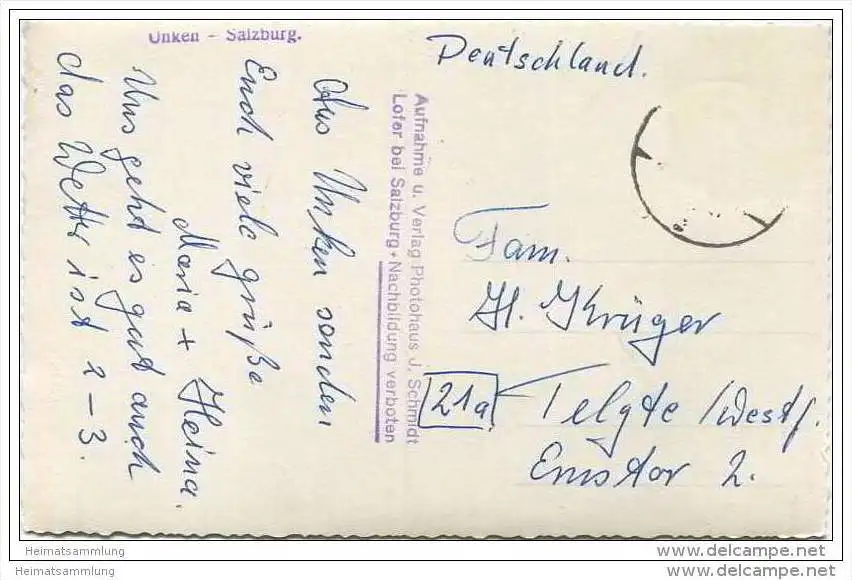 Unken - Salzburg.
Aus Unken senden
Euch viele grüße
Maria + Heina.
Uns geht es gut auch
das Wetter ist 2-3.
Aufnahme u. Verlag Photohaus J. Schmidt
Lofer bei Salzburg + Nachbildung verboten
Deutschland.
Fam.
H. Krüger
21a Telgte /Westf.
Emstor 2.
Heimatsammlung
Heimatsammlung
www.delcampe.net
www.delcampe.net